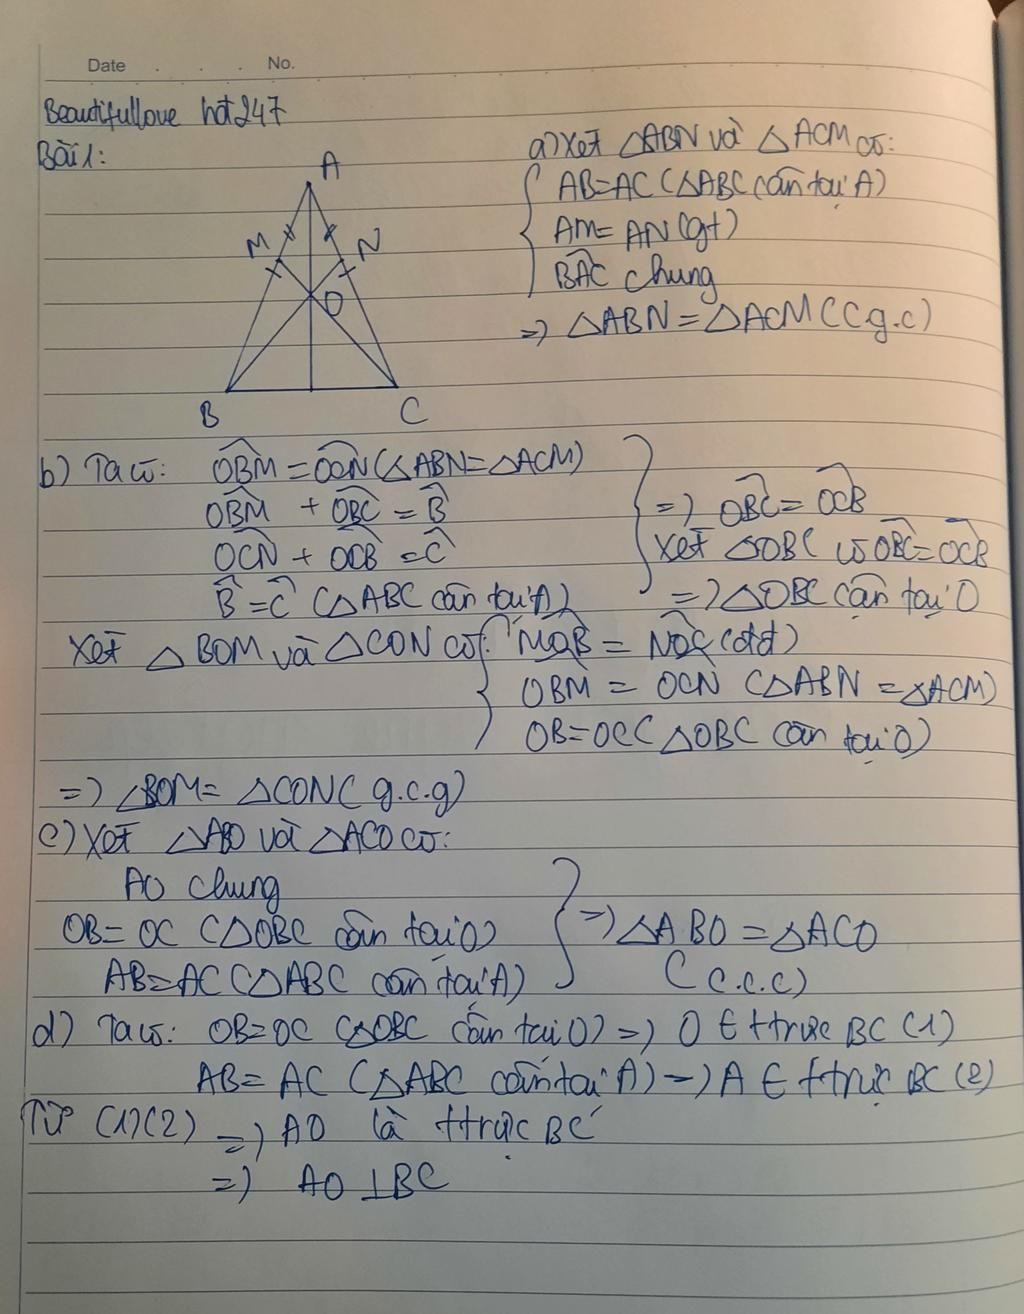 Date . . . No.
Beautifullove hđ247
Bài 1:
A
M
N
O
B
C
a) Xét △ABN và △ACM có:
AB=AC (△ABC cân tại A)
AM=AN (gt)
BAC chung
=> △ABN = △ACM (c.g.c)
b) Ta có: OBM = OCN (△ABN=△ACM)
OBM + OBC = B
OCN + OCB = C
B = C (△ABC cân tại A)
=> OBC = OCB
Xét △OBC có OBC = OCB
=> △OBC cân tại O
Xét △BOM và △CON có: MOB = NOC (đđ)
OBM = OCN (△ABN = △ACM)
OB=OC (△OBC cân tại O)
=> △BOM = △CON (g.c.g)
c) Xét △ABO và △ACO có:
AO chung
OB = OC (△OBC cân tại O)
AB=AC (△ABC cân tại A)
=> △ABO = △ACO
(c.c.c)
d) Ta có: OB=OC (△OBC cân tại O) => O ∈ ttrực BC (1)
AB = AC (△ABC cân tại A) => A ∈ ttrực BC (2)
Từ (1)(2) => AO là ttrực BC
=> AO ⊥ BC